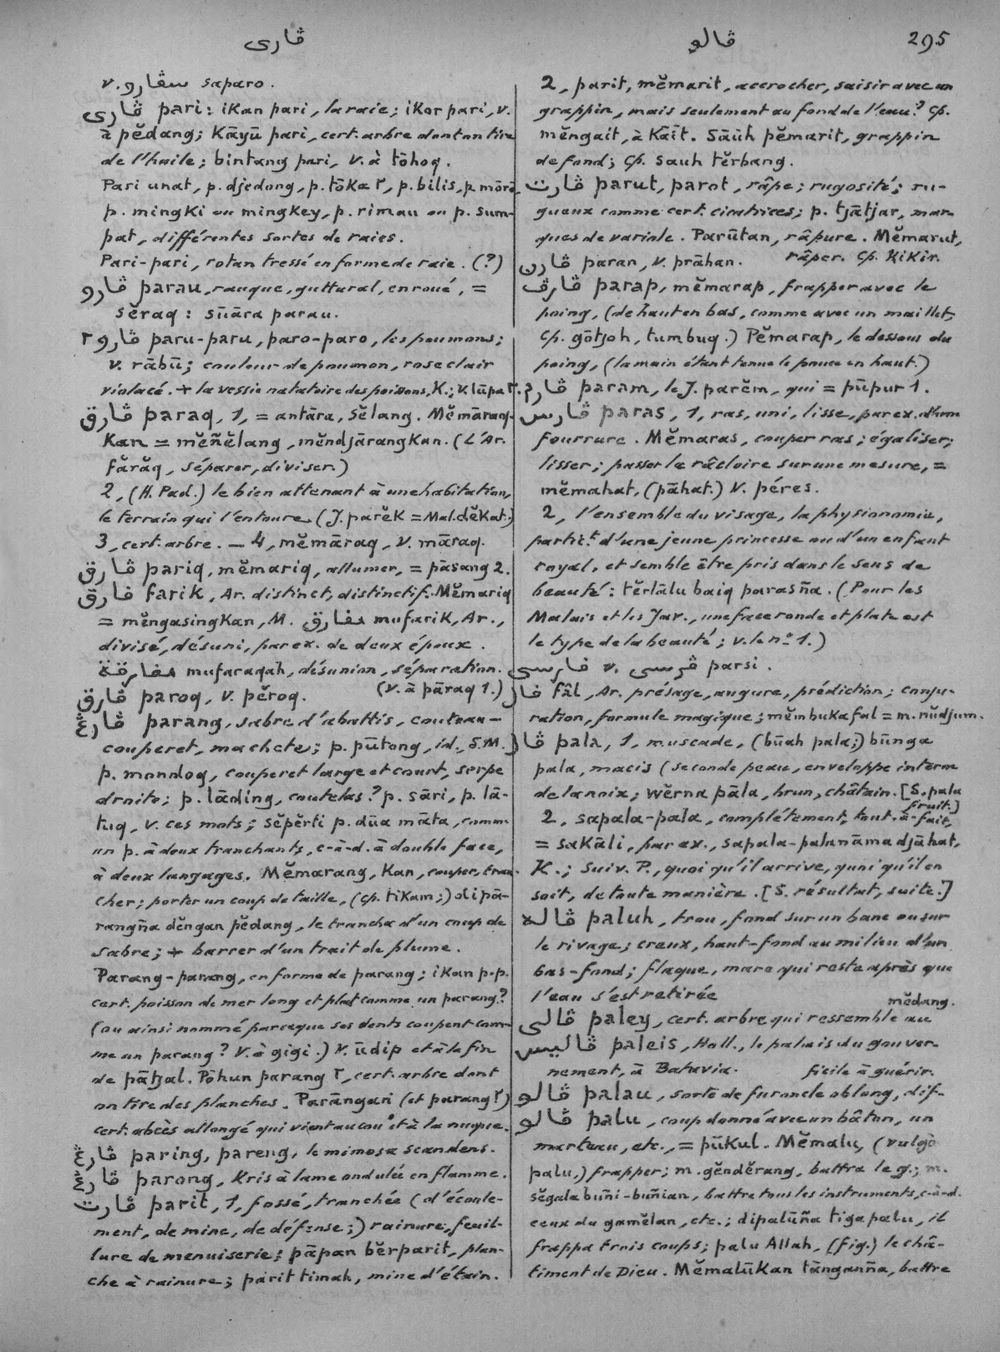 ڤارى
ڤالو
295
v. سڤارو saparo.
ڤارى pari: ikan pari, la raie; ikor pari, v.
à pĕdang; Kāyū pari, cert. arbre dont on tire
de l'huile; bintang pari, v. à tōhoq.
Pari unat, p. djedong, p. tōka ٢, p. bilis, p. mōro,
p. mingki ou mingkey, p. rimau ou p. sum-
pat, différentes sortes de raies.
Pari-pari, rotan tressé en forme de raie. (?)
ڤارو parau, rauque, guttural, enroué, =
sĕraq: sūāra parau.
ڤارو٢ paru-paru, paro-paro, les poumons;
v. rābū; couleur de poumon, rose clair
violacé. + la vessie natatoire des poissons, K.; v. lūpa ٢.
ڤارق paraq, 1, = antāra, sĕlang. Mĕmāraq-
kan = mĕñĕlang, mĕndjārangkan. (L'Ar.
fărăq, séparer, diviser)
2, (H. Pad.) le bien attenant à une habitation,
le terrain qui l'entoure (J. parĕk = Mal. dĕkat.)
3, cert. arbre. — 4, mĕmāraq, v. māraq.
ڤارق pariq, mĕmariq, allumer, = pāsang 2.
فارق farik, Ar. distinct, distinctif. Mĕmariq
= mĕngasingkan, M. مفارق mufarik, Ar.,
divisé, désuni, par ex. de deux époux.
مفارقة mufaraqah, désunion, séparation.
(v. à pāraq 1.)
ڤارق paroq, v. pĕroq.
ڤارڠ parang, sabre d'abattis, couteau-
couperet, machete; p. pūtong, id., S.M.
p. mondoq, couperet large et court, serpe
droite; p. lāding, coutelas? p. sāri, p. lā-
tuq, v. ces mots; sĕpĕrti p. dūa māta, comme
un p. à deux tranchants, c-à-d. à double face,
à deux langages. Mĕmarang, Kan, couper, tran-
cher; porter un coup de taille, (cp. tikam;) di pā-
rangña dĕngan pĕdang, le trancha d'un coup de
sabre; + barrer d'un trait de plume.
Parang-parang, en forme de parang; ikan p.-p.
cert. poisson de mer long et plat comme un parang?
(ou ainsi nommé parceque ses dents coupent com-
me un parang? v. à gigi.) v. ūdip et à la fin
de pāhal. Pōhun parang ٢, cert. arbre dont
on tire des planches. Parāngan (et parang ٢)
cert. abcès allongé qui vient au cou et à la nuque.
ڤارڠ paring, pareng, le mimosa scandens.
ڤارڠ parong, Kris à lame ondulée en flamme.
ڤارت parit, 1, fossé, tranchée (d'écoule-
ment, de mine, de défense;) rainure, feuil-
lure de menuiserie; pāpan bĕrparit, plan-
che à rainure; parit timah, mine d'étain.
2, parit, mĕmarit, accrocher, saisir avec un
grappin, mais seulement au fond de l'eau? Cp.
mĕngait, à Kāit. Sāūh pĕmarit, grappin
de fond; Cp. Sauh tĕrbang.
ڤارت parut, parot, râpe; rugosité; ru-
gueux comme cert. cicatrices; p. tjātjar, mar-
ques de variole. Parūtan, râpure. Mĕmarut,
râper. Cp. Kikir.
ڤارن paran, v. prāhan.
ڤارڤ parap, mĕmarap, frapper avec le
poing, (de haut en bas, comme avec un maillet,
Cp. gōtjoh, tumbuq.) Pĕmarap, le dessous du
poing, (la main étant tenue le pouce en haut.)
ڤارم param, le J. parĕm, qui = pūpur 1.
ڤارس paras, 1, ras, uni, lisse, par ex. d'une
fourrure. Mĕmaras, couper ras; égaliser;
lisser; passer la râcloire sur une mesure, =
mĕmahat, (pāhat.) v. péres.
2, l'ensemble du visage, la physionomie,
partic.t d'une jeune princesse ou d'un enfant
royal, et semble être pris dans le sens de
beauté: tĕrlālu baiq parasña. (Pour les
Malais et les Jav., une face ronde et plate est
le type de la beauté; v. le n.o 1.)
فارسي v. ڤرسى parsi.
فال fâl, Ar. présage, augure, prédiction; conju-
ration, formule magique; mĕmbuka fal = m. nūdjum.
ڤال pala, 1, muscade, (būah pala;) būnga
pala, macis (seconde peau, enveloppe interne
de la noix; wĕrna pāla, brun, châtain. [S. pala
fruit.]
2, sapala-pala, complétement, tout-à-fait,
= sakāli, par ex., sapala-pala nāma djāhat,
K.; Suiv. P., quoi qu'il arrive, quoi qu'il en
soit, de toute manière. [S. résultat, suite.]
ڤاله paluh, trou, fond sur un banc ou sur
le rivage; creux, haut-fond au milieu d'un
bas-fond; flaque, mare qui reste après que
l'eau s'est retirée
mĕdang.
ڤالى paley, cert. arbre qui ressemble au
ڤاليس paleis, Holl., le palais du gouver-
nement, à Batavia.
facile à guérir.
ڤالو palau, sorte de furoncle oblong, dif-
ڤالو palu, coup donné avec un bâton, un
marteau, etc., = pūkul. Mĕmalu, (vulgo
palu,) frapper; m. gĕndĕrang, battre le g.; m.
sĕgala buñi-buñian, battre tous les instruments, c-à-d.
ceux du gamĕlan, etc.; dipalūña tiga palu, il
frappa trois coups; palu Allah, (fig.) le châ-
timent de Dieu. Mĕmalūkan tānganña, battre